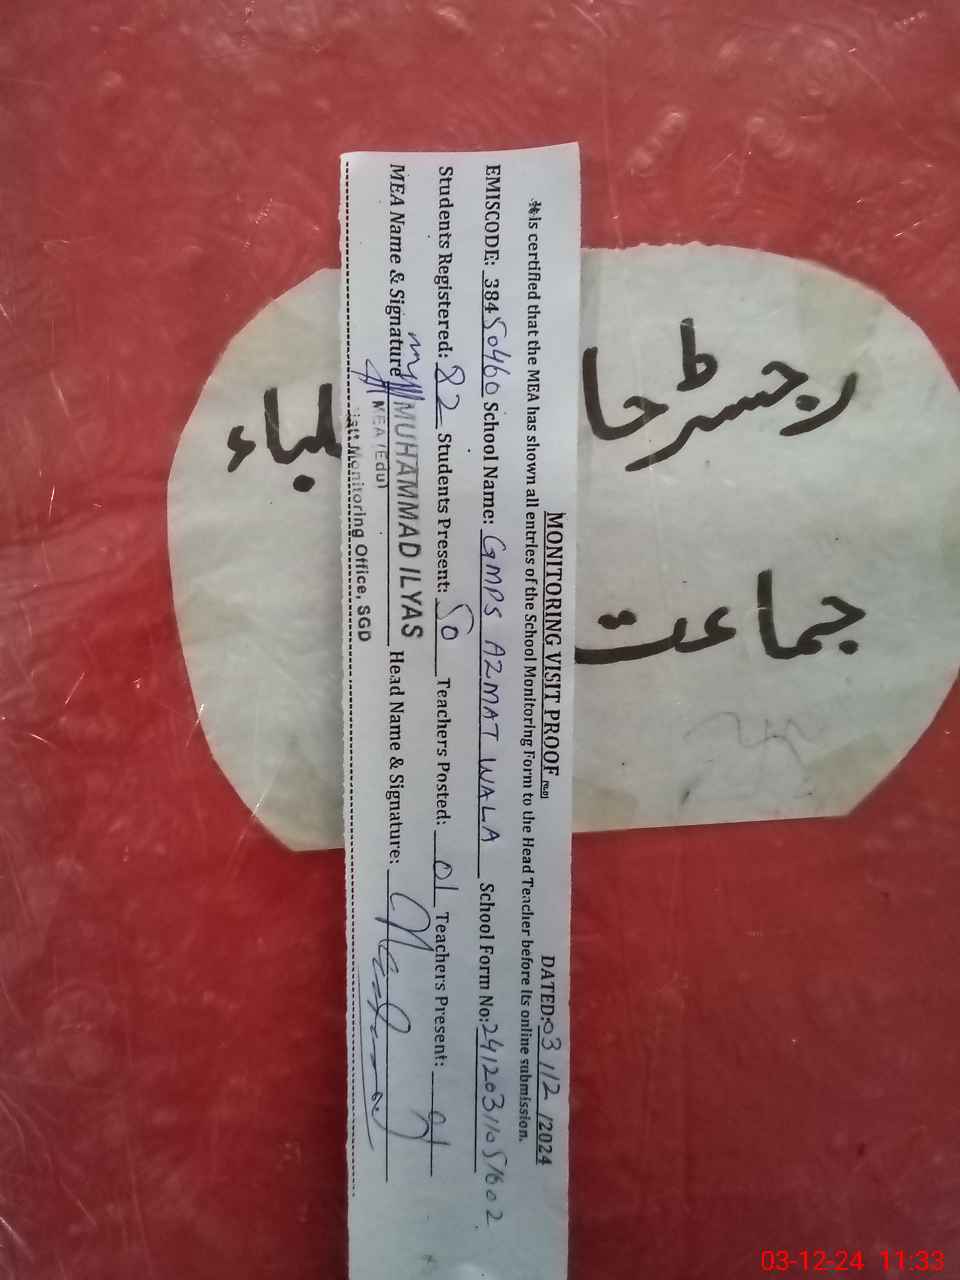 MONITORING VISIT PROOF DATED: 03/12/2024
It is certified that the MEA has shown all entries of the School Monitoring Form to the Head Teacher before its online submission.
EMISCODE: 38450460 School Name: GMPS AZMAT WALA School Form No: 24120311051602
Students Registered: 82 Students Present: 50 Teachers Posted: 01 Teachers Present: 01
MEA Name & Signature MUHAMMAD ILYAS Head Name & Signature:
MEA (Edu)
Monitoring Office, SGD
رجسٹر حا
طلباء
جماعت
03-12-24 11:33